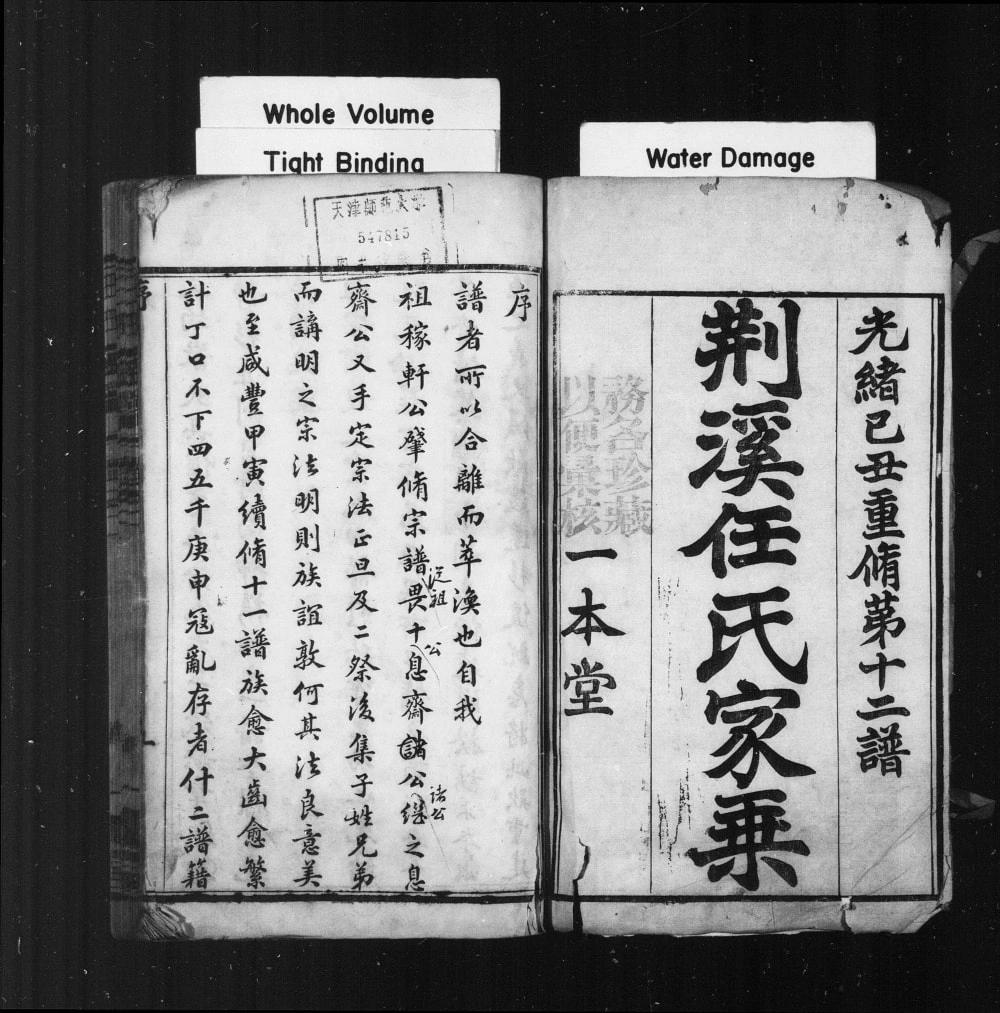 Whole Volume
Tight Binding
Water Damage
光緒己丑重脩苐十二譜
荆溪任氏家乗
一本堂
務各珍藏
以便彙核
天津師範大学
547815
序
譜者所以合離而萃渙也自我
祖稼軒公肇脩宗譜畏十息齋諸公繼之息
從祖
公
诸公
齋公又手定宗法正旦及二祭後集子姓兄弟
而講明之宗法明則族誼敦何其法良意美
也至咸豐甲寅續脩十一譜族愈大齒愈繁
計丁口不下四五千庚申冦亂存者什二譜籍
序